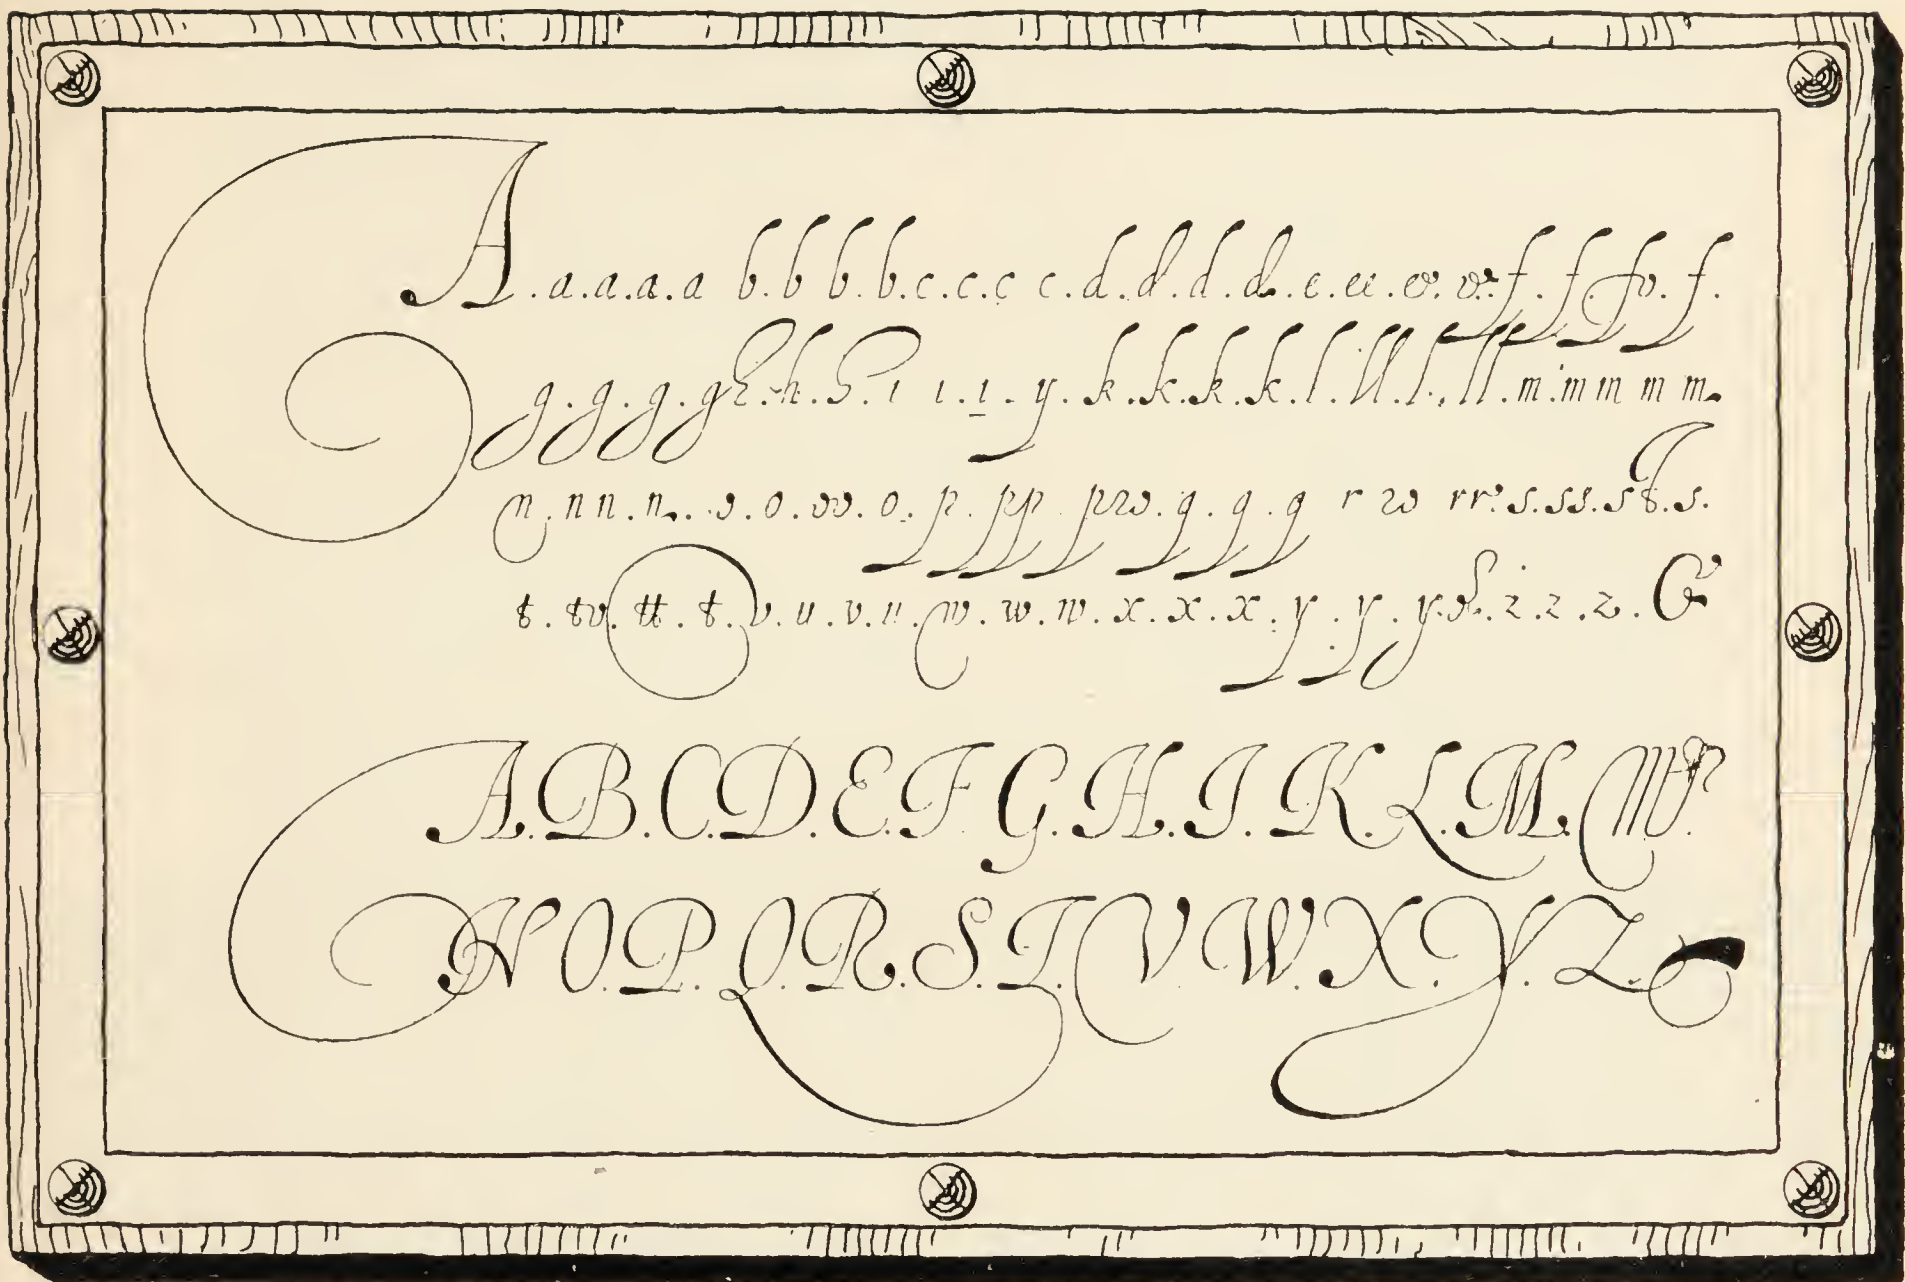 A.a.a.a.a b.b b.b.c.c.c c.d.d.d.d.e.ee.er.er.f.f.fv.f.
g.g.g.gh.h.h.i i.i.y.k.k.k.k.l.ll.l.ll.m.m m m m.
n.n n.n.o.o.oo.o.p.pp prv.q.q.q r rv rr.s.ss.st.s.
t.tv.tt.t.v.u.v.u.w.w.w.x.x.x.y.y.y.&.z.z.z.&
A.B.C.D.E.F.G.H.I.K.L.M.M.
N O.P.Q.R.S.T.V.W.X.Y.Z.